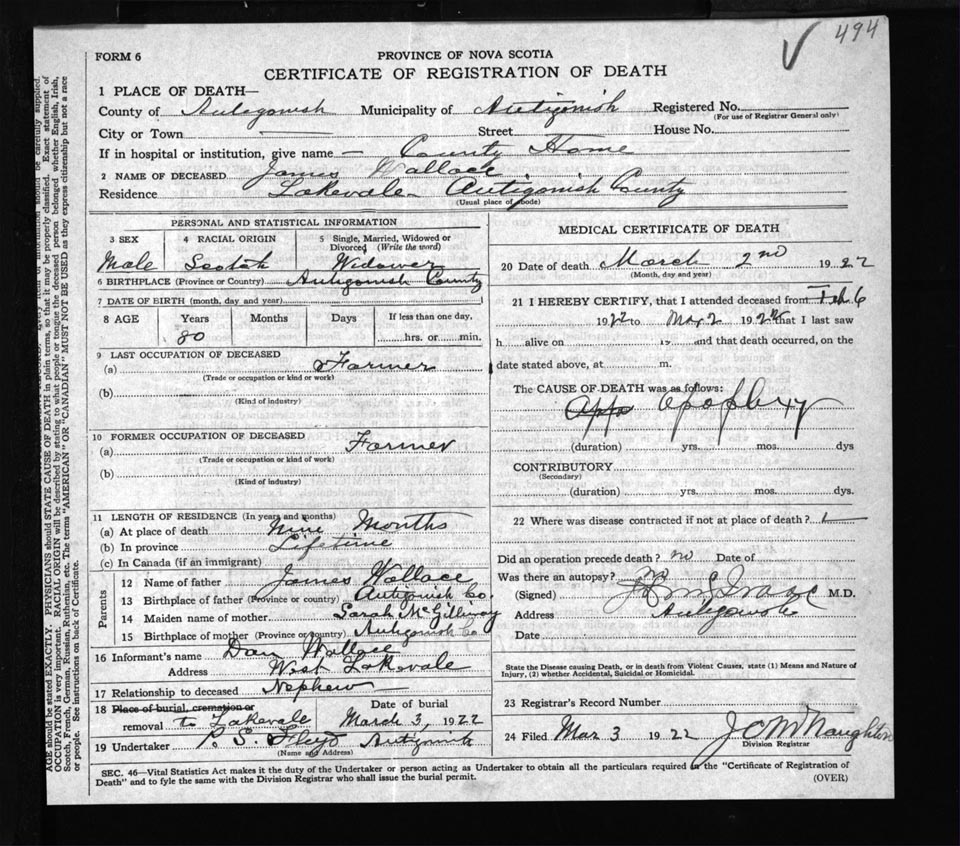 494
FORM 6
PROVINCE OF NOVA SCOTIA
CERTIFICATE OF REGISTRATION OF DEATH
1 PLACE OF DEATH—
County of Antigonish Municipality of Antigonish Registered No.
(For use of Registrar General only)
City or Town Street House No.
If in hospital or institution, give name — County Home
2 NAME OF DECEASED James Wallace
Residence Lakevale Antigonish County
(Usual place of abode)
PERSONAL AND STATISTICAL INFORMATION
3 SEX 4 RACIAL ORIGIN 5 Single, Married, Widowed or Divorced (Write the word)
Male Scotch Widower
6 BIRTHPLACE (Province or Country) Antigonish County
7 DATE OF BIRTH (month, day, and year)
8 AGE Years Months Days If less than one day,
80 hrs. or min.
9 LAST OCCUPATION OF DECEASED
(a) Farmer
(Trade or occupation or kind or work)
(b)
(Kind of industry)
10 FORMER OCCUPATION OF DECEASED
(a) Farmer
(Trade or occupation or kind of work)
(b)
(Kind of industry)
11 LENGTH OF RESIDENCE (In years and months)
(a) At place of death Nine Months
(b) In province Lifetime
(c) In Canada (if an immigrant)
Parents
12 Name of father James Wallace
13 Birthplace of father (Province or country) Antigonish Co
14 Maiden name of mother Sarah McGillivray
15 Birthplace of mother (Province or country) Antigonish Co
16 Informant's name Dan Wallace
Address West Lakevale
17 Relationship to deceased Nephew
18 Place of burial, cremation or Date of burial
removal to Lakevale March 3, 1922
19 Undertaker P. S. Floyd Antigonish
(Name and Address)
MEDICAL CERTIFICATE OF DEATH
20 Date of death March 2nd 1922
(Month, day and year)
21 I HEREBY CERTIFY, that I attended deceased from Feb 6
1922 to Mar 2 1922 that I last saw
h alive on 19 and that death occurred, on the
date stated above, at m.
The CAUSE OF DEATH was as follows:
Appo apoplexy
(duration) yrs. mos. dys
CONTRIBUTORY
(Secondary)
(duration) yrs. mos. dys.
22 Where was disease contracted if not at place of death?
Did an operation precede death? no Date of
Was there an autopsy?
(Signed) M.D.
Address Antigonish
Date
State the Disease causing Death, or in death from Violent Causes, state (1) Means and Nature of
Injury, (2) whether Accidental, Suicidal or Homicidal.
23 Registrar's Record Number
24 Filed Mar 3 1922 J C McNaughton
Division Registrar
SEC. 46—Vital Statistics Act makes it the duty of the Undertaker or person acting as Undertaker to obtain all the particulars required in the "Certificate of Registration of
Death" and to fyle the same with the Division Registrar who shall issue the burial permit.
(OVER)
AGE should be stated EXACTLY. PHYSICIANS should STATE CAUSE OF DEATH in plain terms, so that it may be properly classified. Exact statement of
OCCUPATION is very important. RACIAL ORIGIN will be described by stating to what people or tongue the deceased person belonged whether English, Irish,
Scotch, French, German, Russian, Ruthenian, etc. The terms "AMERICAN" OR "CANADIAN" MUST NOT BE USED as they express citizenship but not a race
or people. See instructions on back of Certificate.